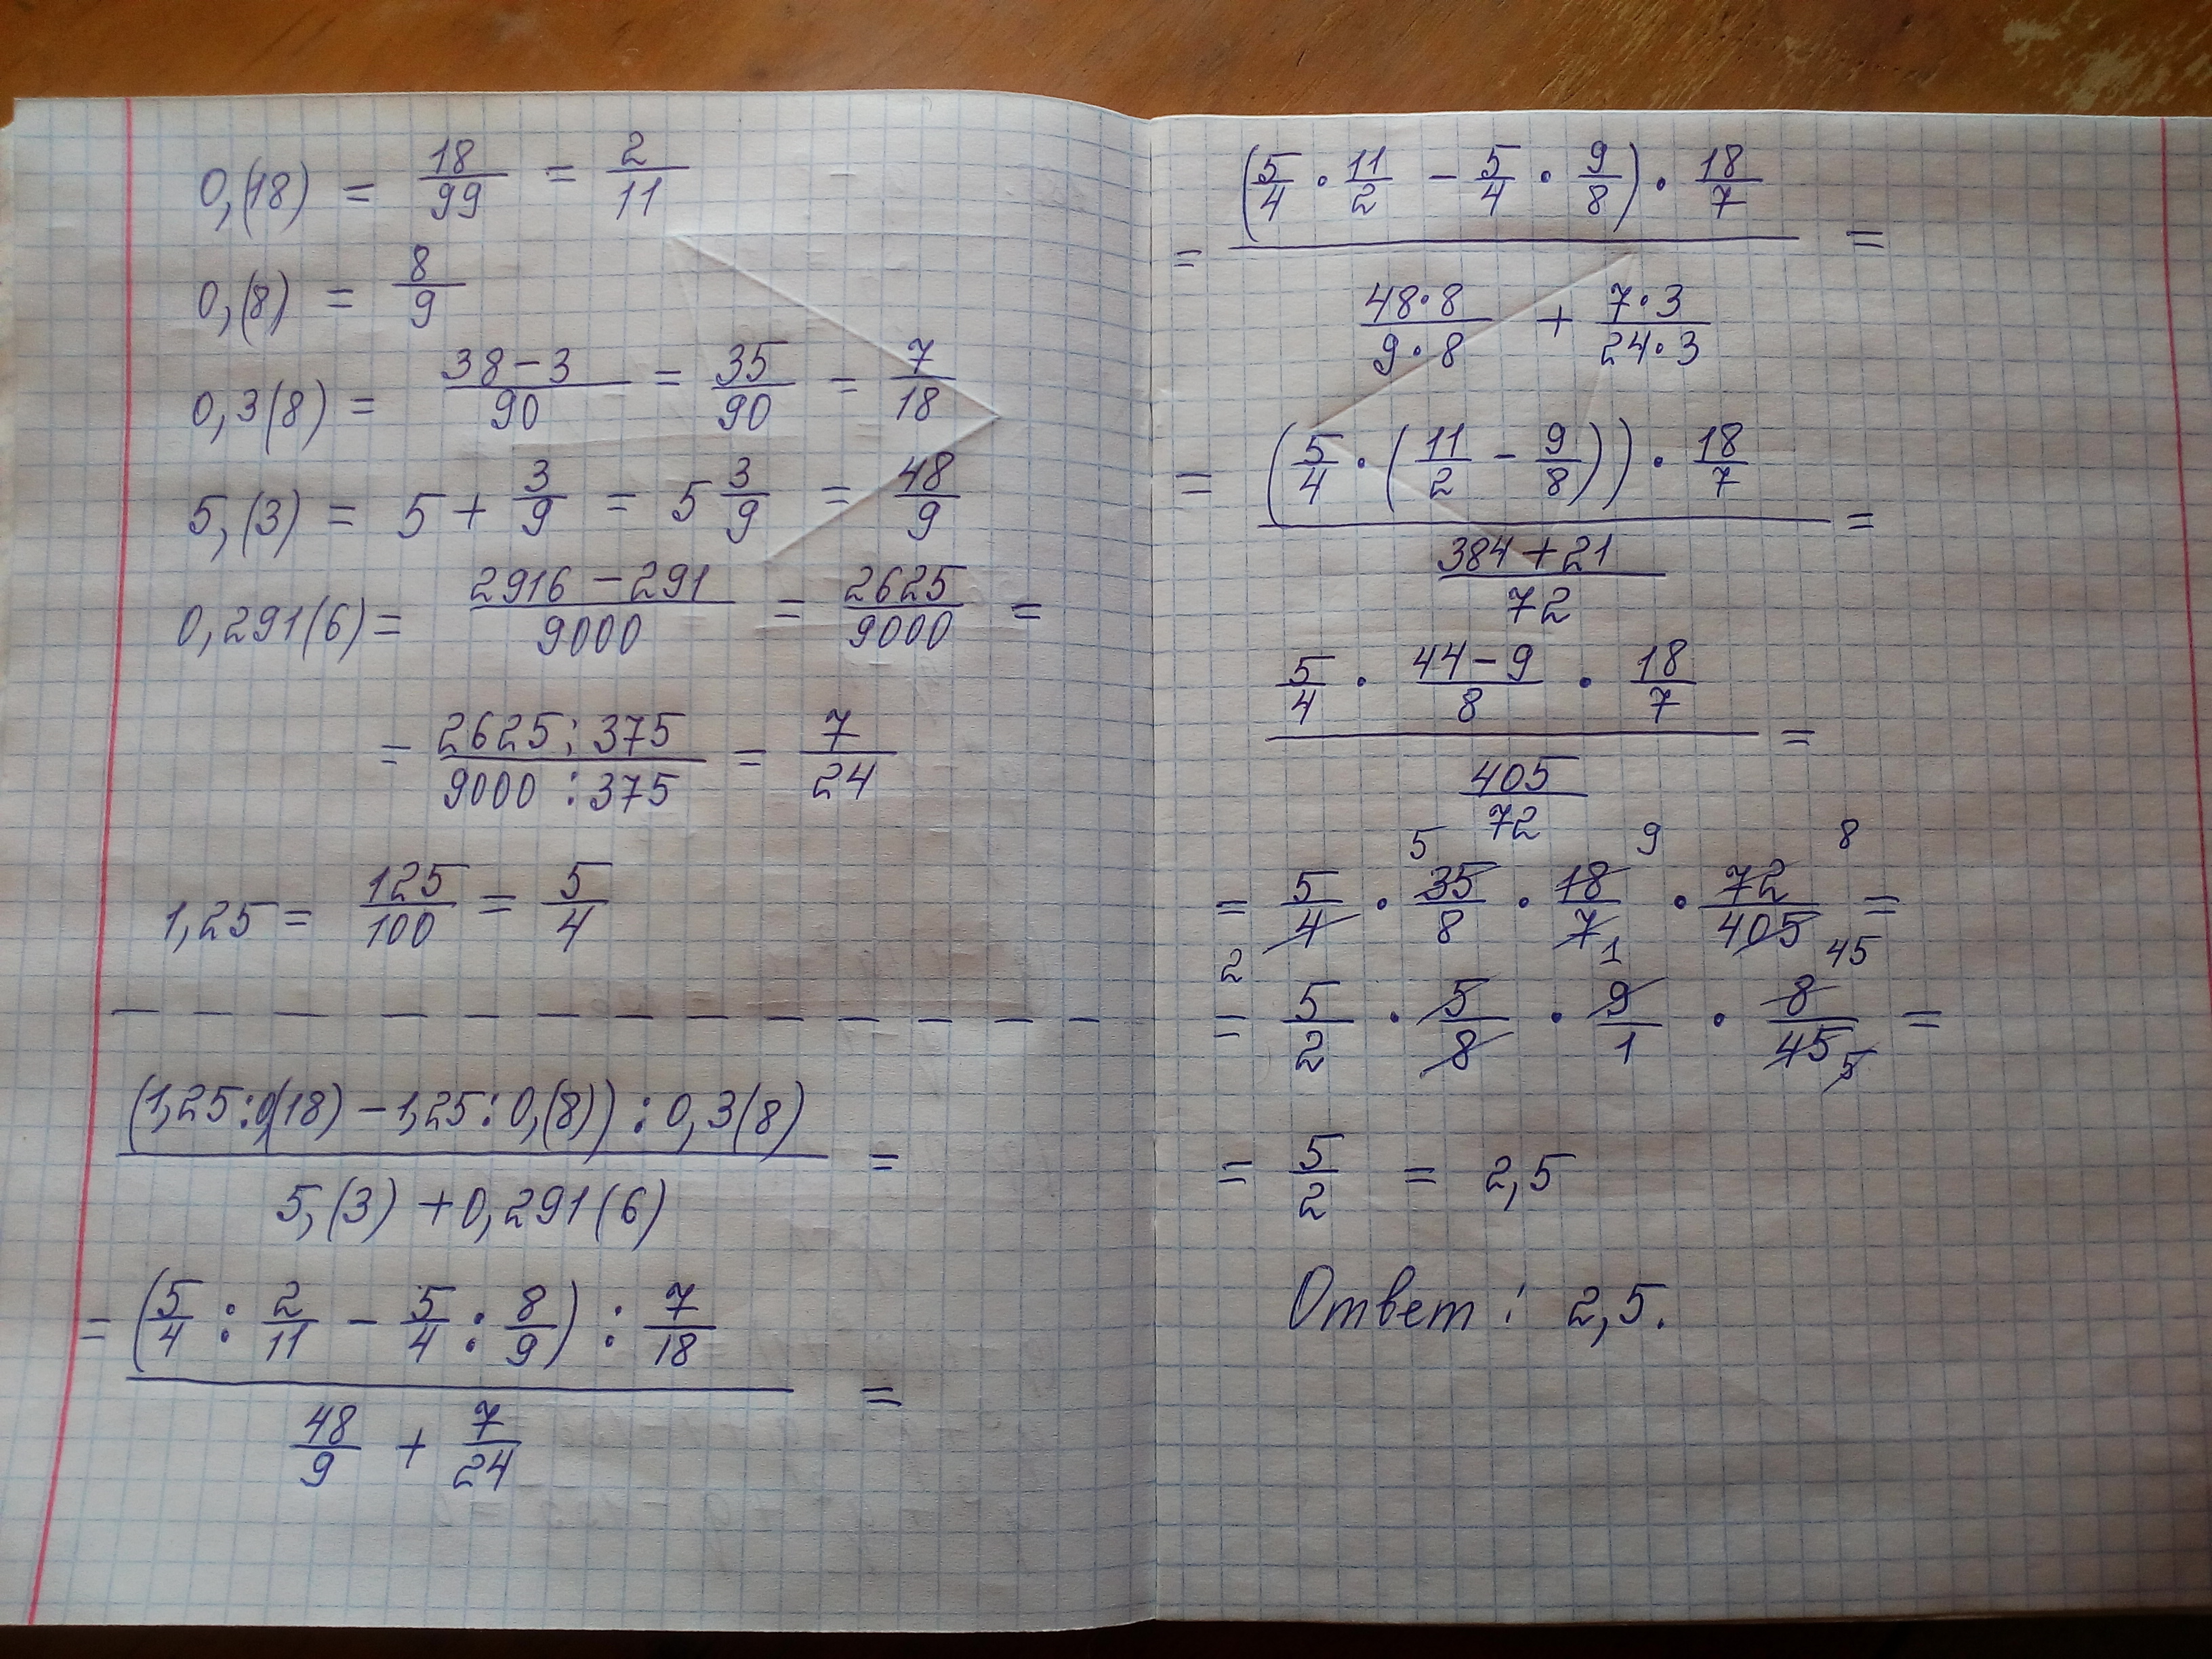 0,(18) = 18/99 = 2/11
0,(8) = 8/9
0,3(8) = (38-3)/90 = 35/90 = 7/18
5,(3) = 5 + 3/9 = 5 3/9 = 48/9
0,291(6) = (2916-291)/9000 = 2625/9000 =
= (2625:375)/(9000:375) = 7/24
1,25 = 125/100 = 5/4
((1,25:0,(18) - 1,25:0,(8)) : 0,3(8))/(5,(3) + 0,291(6)) =
= ((5/4 : 2/11 - 5/4 : 8/9) : 7/18)/(48/9 + 7/24) =
= ((5/4 · 11/2 - 5/4 · 9/8) · 18/7)/((48·8)/(9·8) + (7·3)/(24·3)) =
= ((5/4 · (11/2 - 9/8)) · 18/7)/((384+21)/72) =
(5/4 · (44-9)/8 · 18/7)/(405/72) =
5 9 8
= 5/4 · 35/8 · 18/7 · 72/405 =
2 1 45
= 5/2 · 5/8 · 9/1 · 8/45 =
5
= 5/2 = 2,5
Ответ: 2,5.